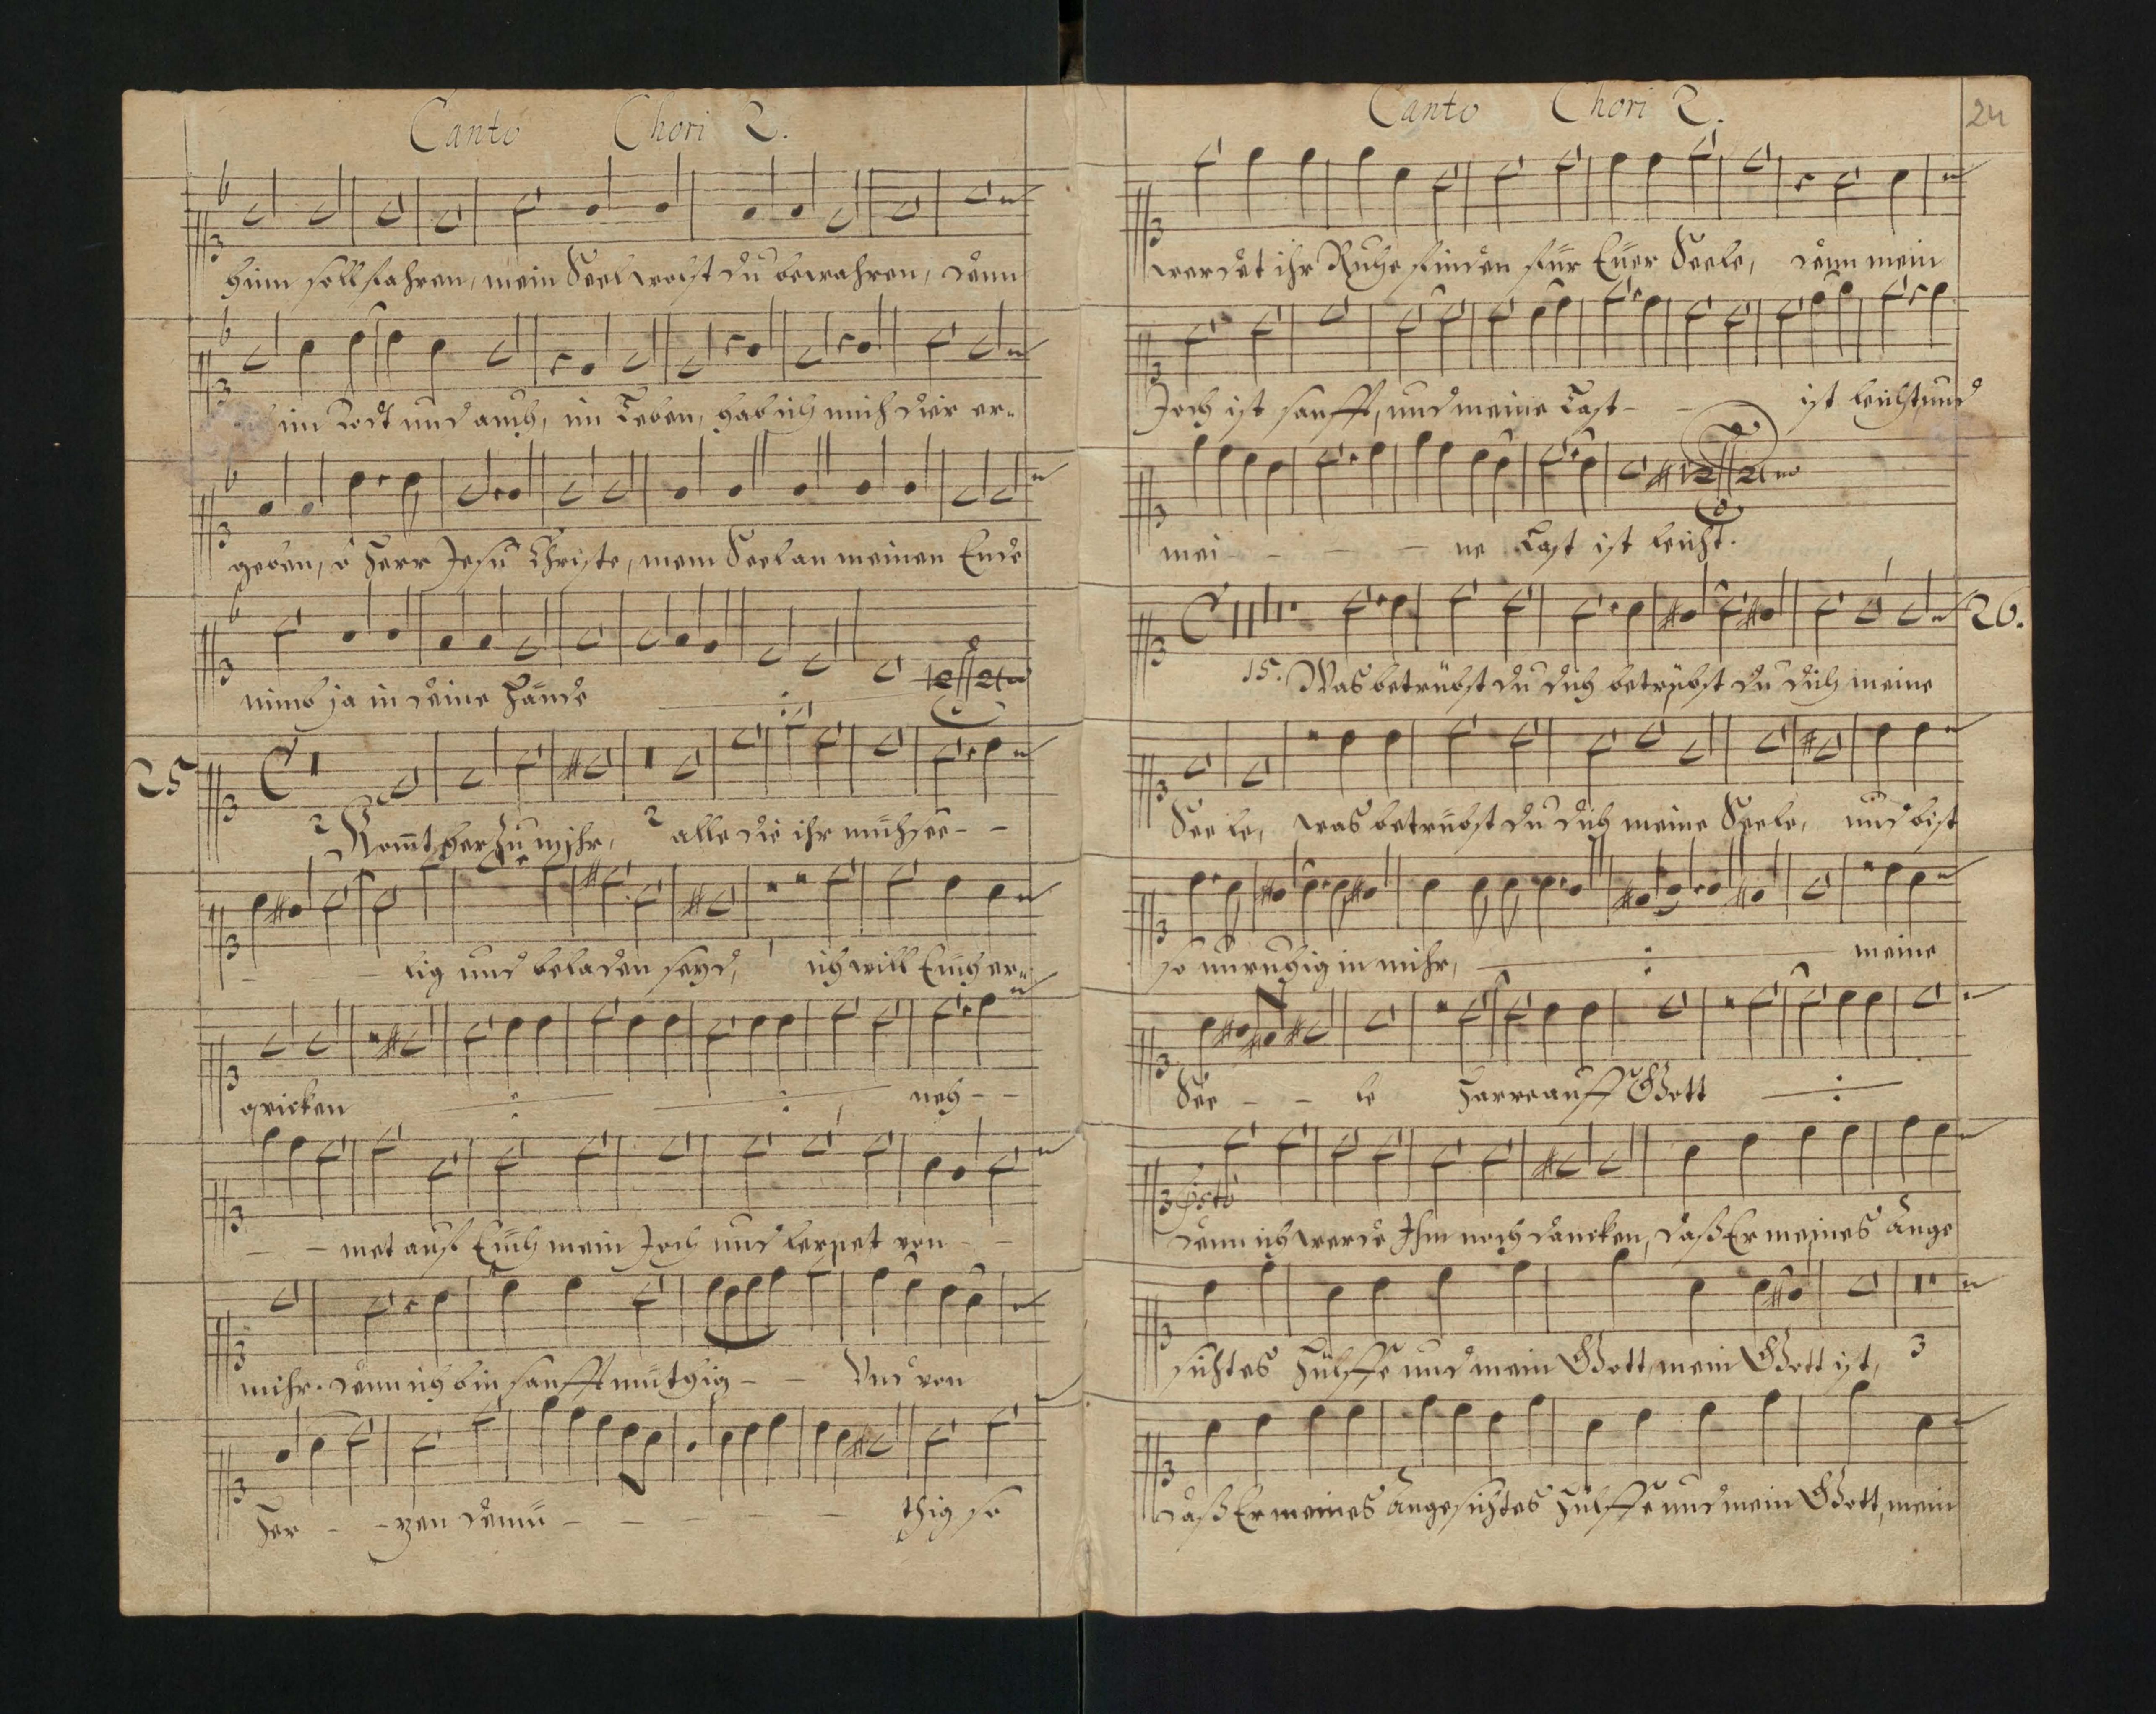 Canto Chori 2.
hinn soll fahren, mein Seel wolst du bewahren, denn
im Todt und auch, im Leben, hab ich mich dir er-
geben, ô Herr Jesu Christe, mein Seel an meinen Ende
nimb ja in deine Hände
25
2 Kom̃t her zu mihr, 2 alle die ihr mühsee- -
- - lig und beladen seyd, ich will Euch er-
qvicken neh - -
- - met auf Euch mein Joch und lernet von - -
mihr. denn ich bin sanfftmüthig - - Und von
Her - - zen demü - - - - - thig so
Canto Chori 2.
24
werdet ihr Ruhe finden für Euer Seele, denn mein
Joch ist sanfft, und meine Last - - ist leicht und
mei - - - - ne Last ist leicht.
26.
15. Was betrübst du dich betrübst du dich meine
Seele, was betrübst du dich meine Seele, und bist
so unruhig in mihr, meine
See - - le Harre auff Gott
denn ich werde Ihm noch dancken, daß Er meines Ange
sichtes Hülffe und mein Gott, mein Gott ist, 3
daß Er meines Angesichtes Hülffe und mein Gott, mein